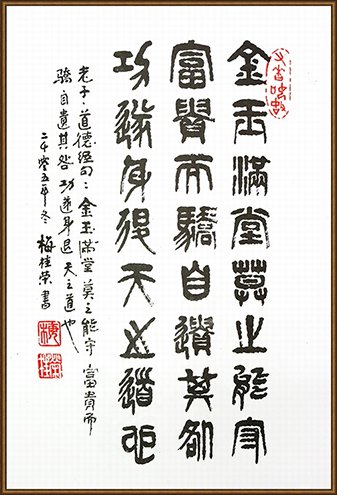 金玉滿堂莫之能守
富貴而驕自遺其咎
功遂身退天之道也
老子：道德經句：金玉满堂 莫之能守 富貴而
驕 自遺其咎 功遂身退 天之道也
二千零五年冬 梅桂荣書